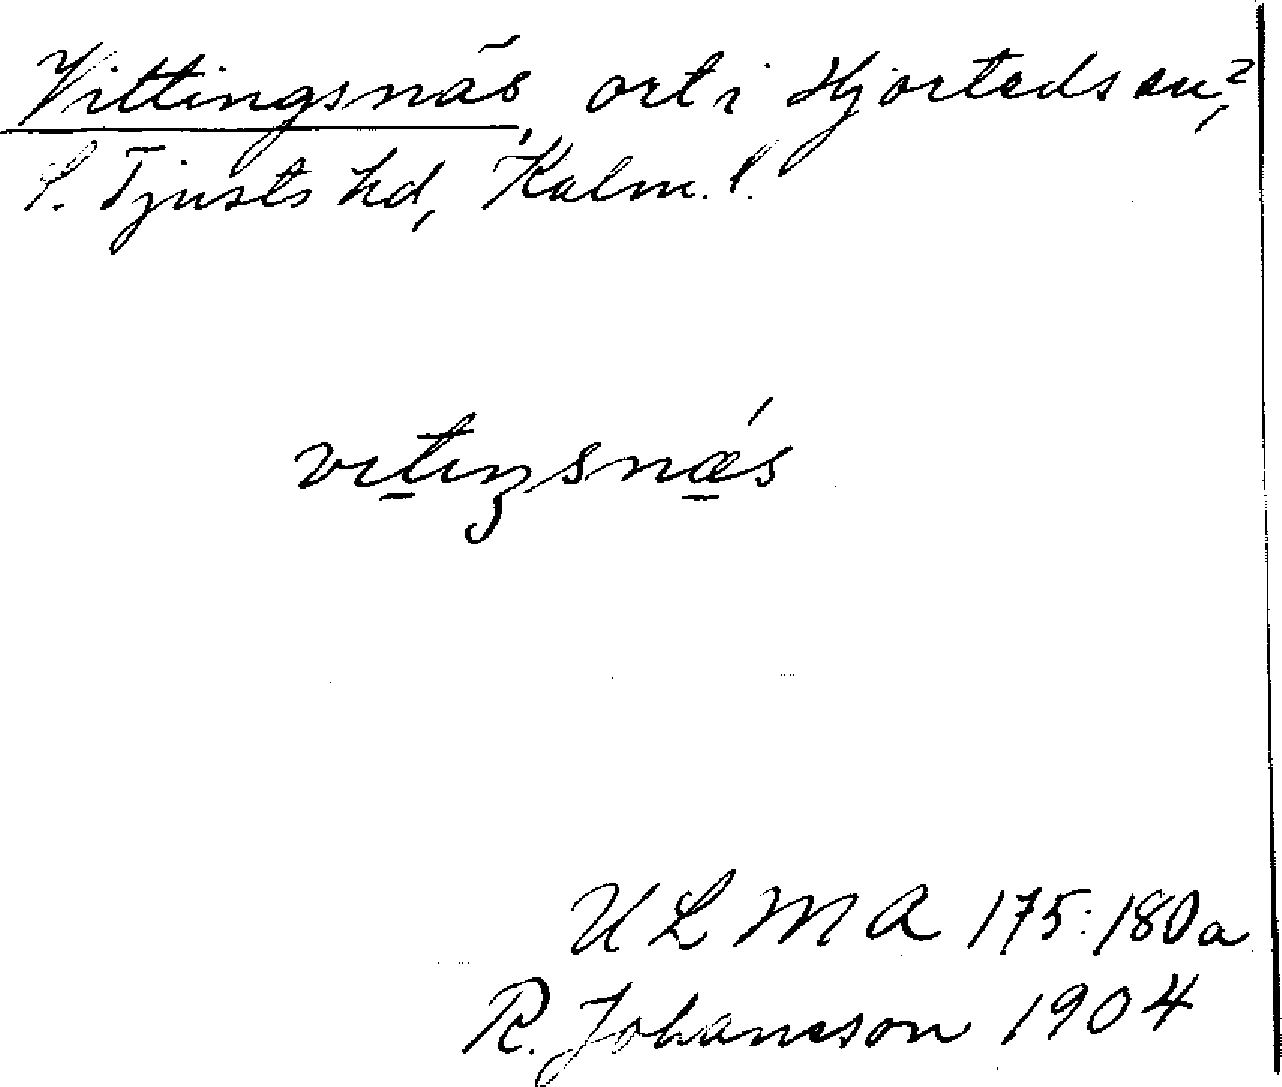 Vittingsnäs, ort i Hjorteds sn?,
S. Tjusts hd, Kalm. l.
vitiŋsnǽs
ULMA 175:180a
R. Johansson 1904